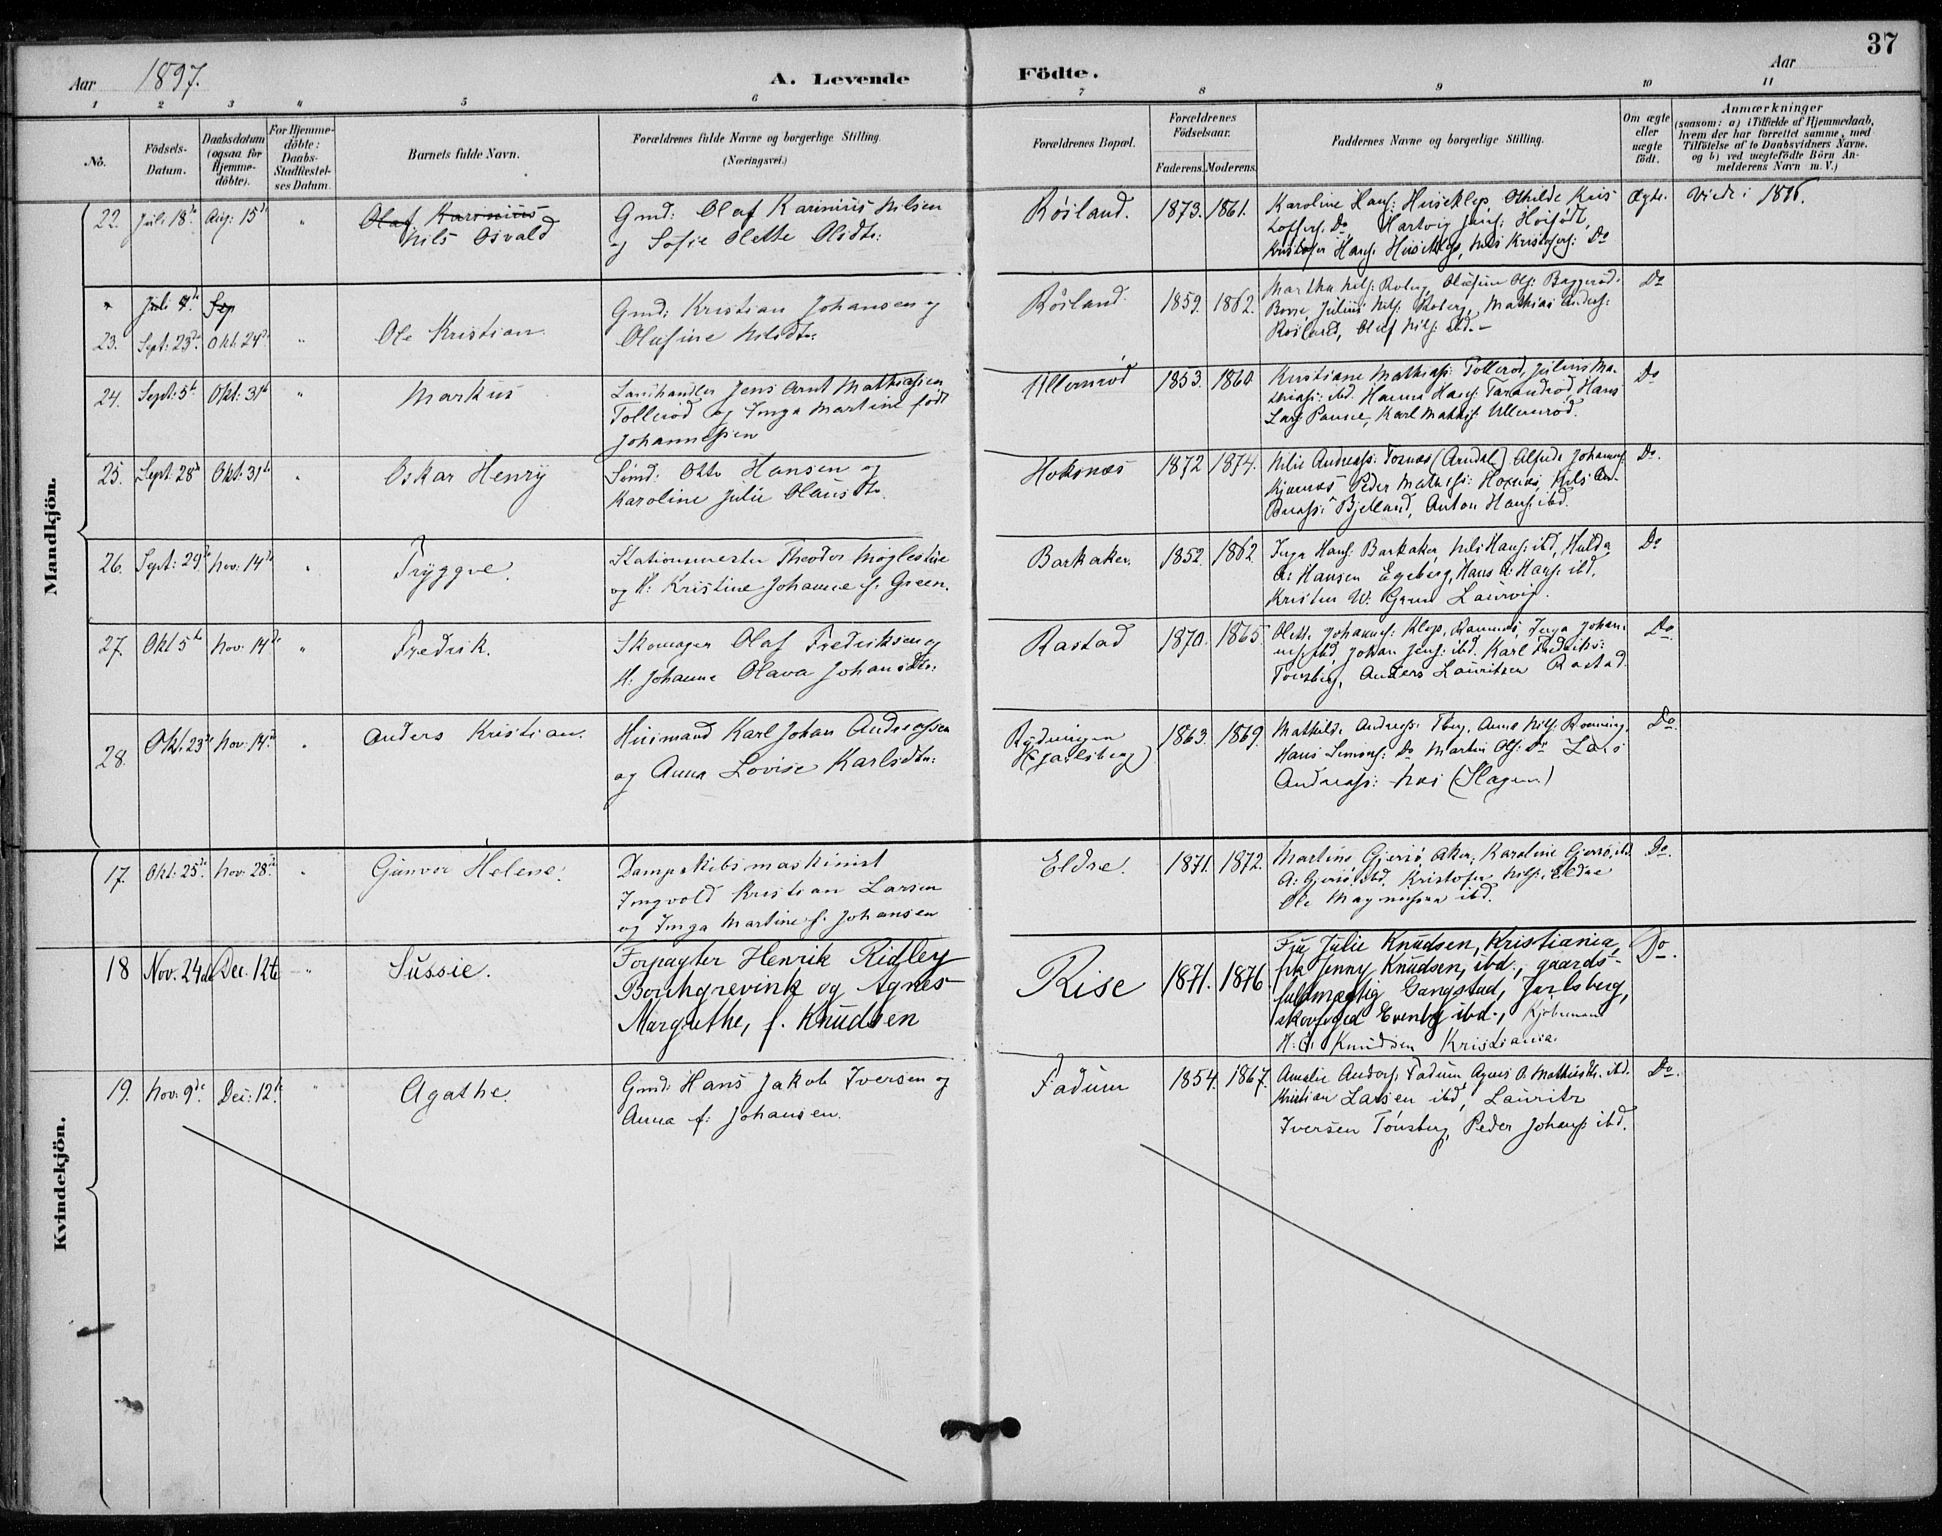 37
Aar 1897. A. Levende Födte. Aar
1 2 3 4 5 6 7 8 9 10 11
Nô. Födsels-Datum. Daabsdatum (ogsaa for Hjemme-döbte). For Hjemme-döbte: Daabs-Stadfæstel-ses Datum. Barnets fulde Navn. Forældrenes fulde Navne og borgerlige Stilling. (Næringsvei.) Forældrenes Bopæl. Forældrenes Födselsaar. Faderens. Moderens. Faddernes Navne og borgerlige Stilling. Om ægte eller uægte födt. Anmærkninger (saasom: a) i Tilfælde af Hjemmedaab, hvem der har forrettet samme, med Tilföielse af to Daabsvidners Navne. og b) ved uægtefödte Börn An-melderens Navn m. V.)
Mandkjön.
22. Juli 18de Aug: 15de " Olaf Karinius
Nils Osvald
Gmd: Olaf Karinius Nilsen
og Sofie Olette Olsdtr:
Röisland. 1873. 1861.
Karoline Hans: Huseklep, Othilde Kris
toffers. Do, Hartvig Jens: Höifödt,
Kristofer Hans: Huseklep, Nils Kristofers: Do
Ægte. Viede i 1896.
" Juli 4de Sep
23. Sept: 23de Okt: 24de " Ole Kristian.
Gmd: Kristian Johansen og
Olafine Nilsdtr:
Röisland. 1859. 1862.
Martha Nils: Roberg, Olufine Ols: Baggeröd.
Borre, Julius Nils: Roberg, Mathias Anders:
Roisland, Oluf Nils: ibd. –
Do
24. Sept: 5te Okt: 31te " Markus
Landhandler Jens Arnt Mathiassen
Tolleröd og Inga Martine födt
Johannessen
Ullernröd 1853. 1860.
Kristiane Mathiass: Tolleröd, Julius Ma-
thiass: ibd. Hanna Hans: Tarandröd, Hans
Lars: Pause, Karl Mathis: Ullernröd.
Do
25. Sept: 28de Okt: 31te " Oskar Henry
Sömd: Otto Hansen og
Karoline Julie Olausdtr.
Hoksnæs 1872 1874.
Nils Andreass: Tornæs (Arndal) Alfred Johanns:
Kjærnæs Peder Mathiss: Hoxnæs, Nils An-
dreass: Bjelland, Anton Hans: ibd.
Do.
26. Sept: 29de Nov: 14de " Tryggve.
Stationsmester Theodor Møglestue
og H: Kristine Johanne f. Green.
Barkaker. 1852. 1862.
Inga Hans: Barkaker, Nils Hans: ibd, Hulda
A: Hansen Egeberg, Hans A: Hans: ibd.
Kristen W. Green Laurvig.
Do
27. Okt 5te Nov: 14de " Fredrik.
Skomager Olaf Fredriksen og
H: Johanne Olava Johansdtr:
Rastad 1870. 1865
Olette Johannes: Klop, Ramnes, Inga Johan
nes: ibd, Johan Jens: ibd. Karl Fredriks:
Tönsberg, Anders Lauritsen Rastad.
Do
28. Okt. 23de Nov: 14de " Anders Kristian.
Husmand Karl Johan Andreassen
og Anna Lovise Karlsdtr:
Rydningen
(Jarlsberg)
1863. 1869.
Mathilde Andreass: Berg, Anne Nils: Rönning,
Hans Simons: Do Martin Ols: Do Lars
Andreass: Næs (Slagen)
Do
Kvindekjön.
17. Okt: 25de Nov: 28de " Gunvor Helene.
Dampskibsmaskinist
Ingvold Kristian Larsen
og Inga Martine f. Johansen
Eldre. 1871. 1872.
Martine Gjersö, Aker, Karoline Gjersö, ibd.
A: Gjersö ibd. Kristofer Nils: Eldre
Ole Magnussen ibd.
Do.
18 Nov. 24de Dec. 12te – " Sussie.
Forpagter Henrik Ridley
Borchgrevink og Agnes
Margrethe, f. Knudsen
Rise 1871. 1876
Fru Julie Knudsen, Kristiania,
frk Jenny Knudsen, ibd., gaards-
fuldmægtig Gangstad, Jarlsberg,
skovfoged Evenby ibd., Kjöbmand
H: C: Knudsen Kristiania.
Do.
19. Nov: 9de Dec: 12te " Agathe.
Gmd: Hans Jakob Iversen og
Anna f: Johansen.
Fadum 1854. 1867.
Amalie Anders: Fadum, Agnes O. Mathisdtr. ibd.
Kristian Larsen ibd, Lauritz
Iversen Tönsberg, Peder Johans: ibd.
Do.